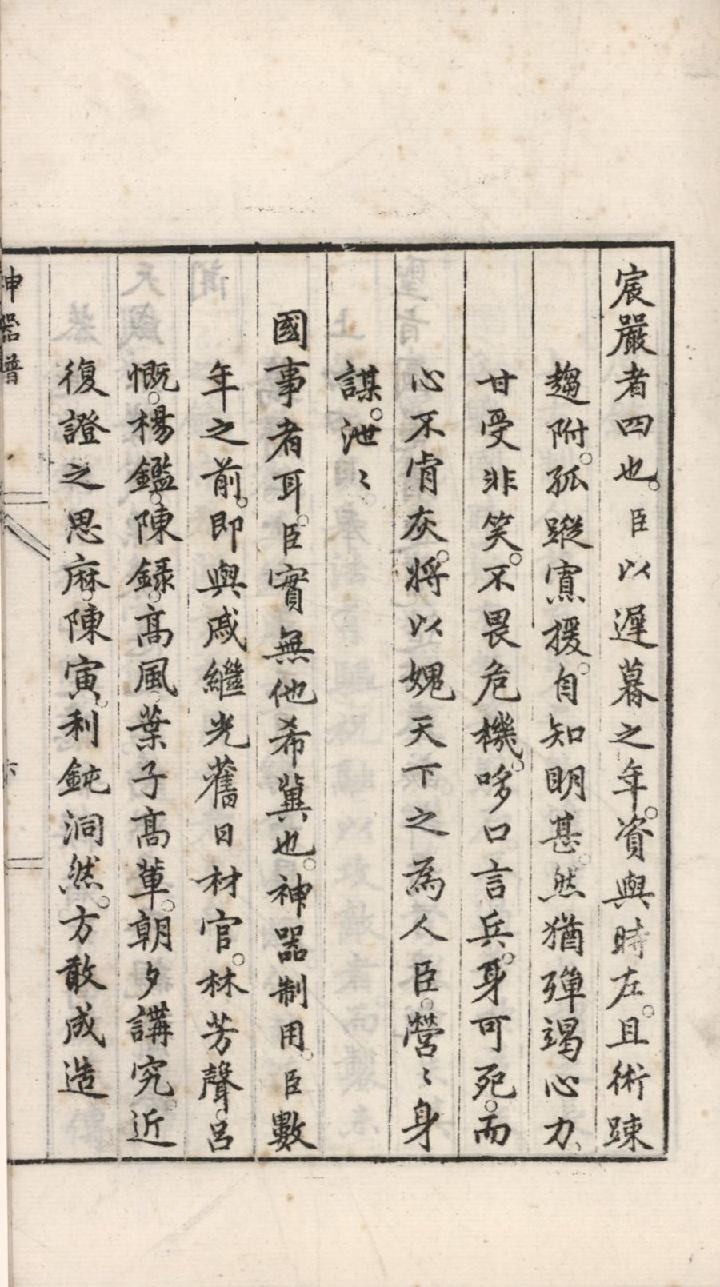 宸嚴者四也。臣以遲暮之年。資與時左。且術踈
趨附。孤蹤寡援。自知明甚。然猶殫竭心力、
甘受非笑。不畏危機。哆口言兵。身可死。而
心不肯灰。將以媿天下之為人臣。營〻身
謀。泄〻
國事者耳。臣實無他希冀也。神器制用。臣數
年之前。即與戚繼光舊日材官。林芳聲。呂
慨。楊鑑。陳録。高風。葉子高軰。朝夕講究。近
復證之思麻。陳寅。利鈍洞然。方敢成造
神器譜
六